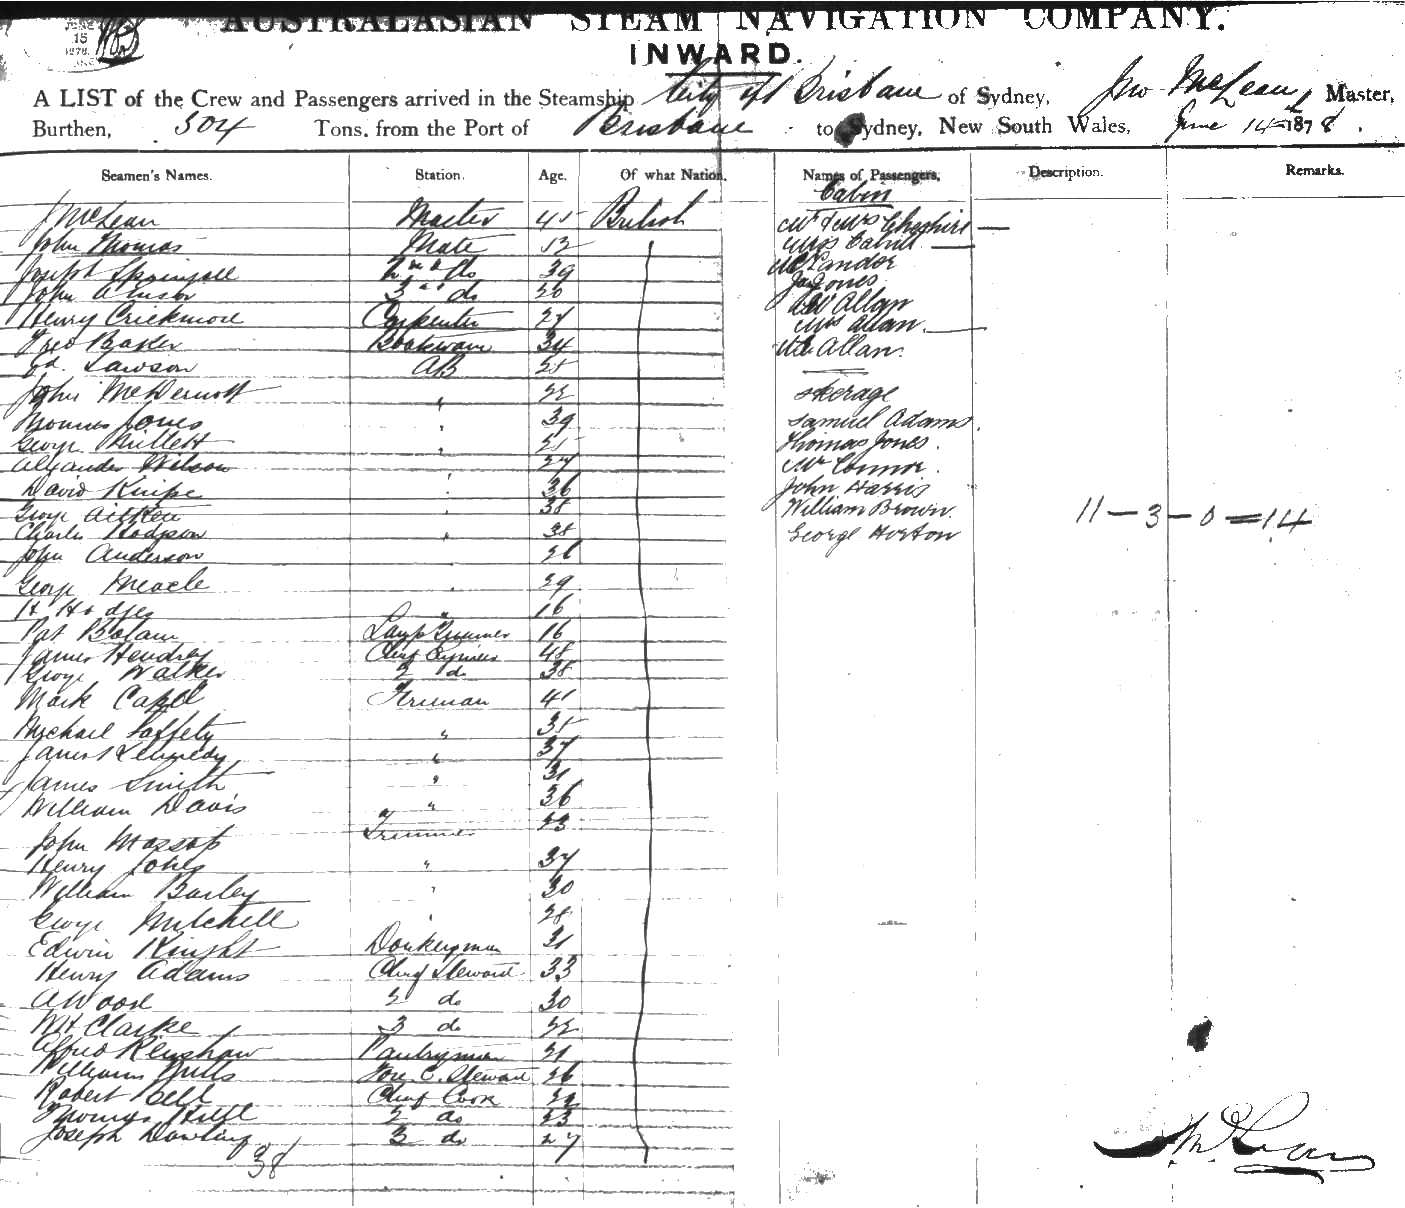 AUSTRALASIAN STEAM NAVIGATION COMPANY.
JUNE
15
1878
INWARD.
A LIST of the Crew and Passengers arrived in the Steamship City of Brisbane of Sydney, Jno McLean, Master,
Burthen, 504 Tons. from the Port of Brisbane to Sydney, New South Wales, June 14 1878.
Seamen's Names. Station. Age. Of what Nation. Names of Passengers. Description. Remarks.
Cabin
J McLean Master 45 British Mr & Mrs Cheshire
John Thomas Mate 52 Miss Cahill
Joseph Springall 2nd do 39 Mr Landor
John 3rd do 20 Jas Jones
Henry Crickmore Carpenter 27 Allan
Fred Baker Boatswain 34 Mrs Allan
Ed. Lawson AB 25 Allan.
John McDermott " 22 Steerage
Thomas Jones " 39 Samuel Adams.
George Millett " 25 Thomas Jones.
Alexander Wilson 27 Mr Connor.
David Knipe " 36 John Harris
George Aitken " 38 William Brown. 11 - 3 - 0 = 14
Charles Hodgson " 38 George Horton
John Anderson 26
George Meacle " 29
H Hodges " 16
Pat Bolam Lamp Trimmer 16
James Hendrey Chief Engineer 48
George Walker 2 do 38
Mark Capel Fireman 41
Michael Laffety " 35
James Kennedy " 37
James Smith " 31
William Davis " 36
John Mossop Trimmer 23
Henry Jones " 37
William Barley " 30
George Mitchell " 28
Edwin Knight Donkeyman 31
Henry Adams Chief Steward 33
A Wood 2 do 30
WH Clarke 3 do 22
Alfred Renshaw Pantryman 21
William Mills Fore C. Steward 26
Robert Bell Chief Cook
Thomas Hill 2 do 23
Joseph Dowling 3 do 27
38
J. McLean